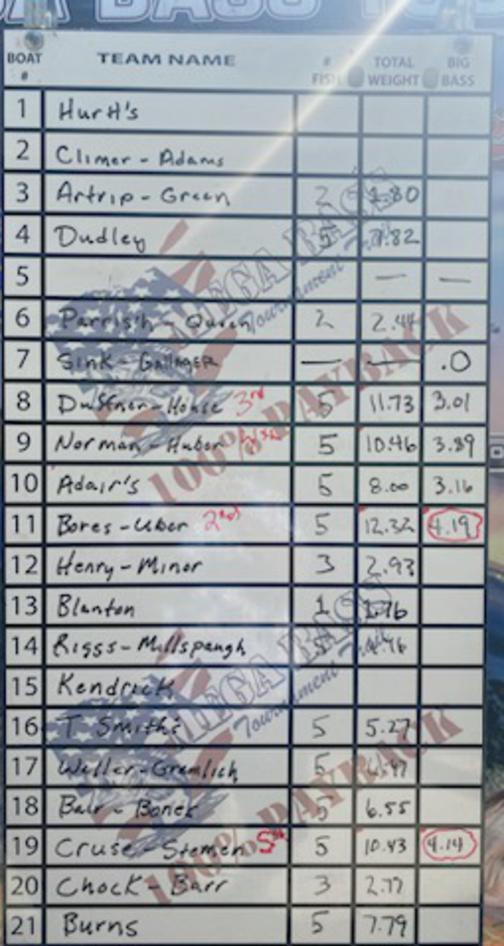 BASS TO
BOAT # TEAM NAME # FISH TOTAL WEIGHT BIG BASS
1 Hurtt's
2 Climer - Adams
3 Artrip - Green 2 1.80
4 Dudley 5 7.82
5 — —
6 Parrish - Queen 2 2.44
7 Sink - Gallager — — .0
8 Dustner - House 3rd 5 11.73 3.01
9 Norman - Huber 5 10.46 3.89
10 Adair's 5 8.00 3.16
11 Bores - Uber 2nd 5 12.32 4.19
12 Henry - Minor 3 2.93
13 Blanton 1 1.76
14 Riggs - Millspaugh 5
15 Kendrick
16 T Smith's 5 5.27
17 Weller - Gremlich 5
18 Bair - Bones 5 6.55
19 Cruse - Stemen 5th 5 10.43 4.14
20 Chock - Barr 3 2.77
21 Burns 5 7.79
MEGA BASS
Tournament Trail
100% PAYBACK
MEGA BASS
Tournament Trail
100% PAYBACK